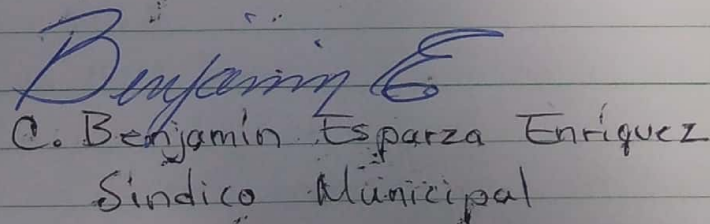 Benjamin E
C. Benjamín Esparza Enríquez
Síndico Municipal